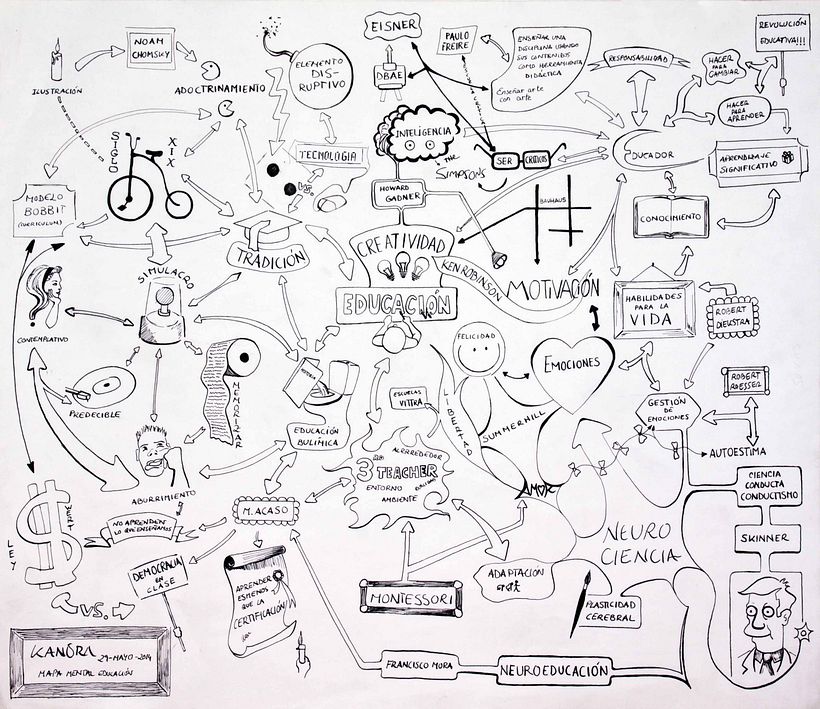 EISNER
PAULO
FREIRE
ENSEÑAR UNA
DISCIPLINA USANDO
SUS CONTENIDOS
COMO HERRAMIENTA
DIDÁCTICA
Enseñar arte
con arte
RESPONSABILIDAD
HACER
PARA
CAMBIAR
REVOLUCIÓN
EDUCATIVA!!!
NOAM
CHOMSKY
ILUSTRACIÓN
ADOCTRINAMIENTO
ELEMENTO
DIS-
RUPTIVO
DBAE
HACER
PARA
APRENDER
SIGLO
XIX
TECNOLOGIA
VS.
INTELIGENCIA
THE
SIMPSONS
SER
CRITICOS
EDUCADOR
APRENDIZAJE
SIGNIFICATIVO
MODELO
BOBBIT
(CURRICULUM)
HOWARD
GADNER
BAUHAUS
CONOCIMIENTO
TRADICIÓN
CREATIVIDAD
KEN ROBINSON
MOTIVACIÓN
SIMULACRO
EDUCACIÓN
HABILIDADES
PARA LA
VIDA
ROBERT
CONTEMPLATIVO
FELICIDAD
EMOCIONES
PREDECIBLE
MEMORIZAR
ESCUELAS
VITTRA
LIBERTAD
SUMMERHILL
GESTIÓN
DE
EMOCIONES
ROBERT
ROESSER
AUTOESTIMA
EDUCACIÓN
BULÍMICA
3
TEACHER
ENTORNO
AMBIENTE
AMOR
ABURRIMIENTO
CIENCIA
CONDUCTA
CONDUCTISMO
LEY
WERT
NO APRENDEN
LO QUE ENSEÑAMOS
M. ACASO
SKINNER
NEURO
CIENCIA
DEMOCRACIA
EN
CLASE
APRENDER
ES MENOS
QUE LA
CERTIFICACIÓN
ADAPTACIÓN
MONTESSORI
PLASTICIDAD
CEREBRAL
VS.
KANDRA
29-MAYO-2014
MAPA MENTAL EDUCACIÓN
FRANCISCO MORA
NEUROEDUCACIÓN